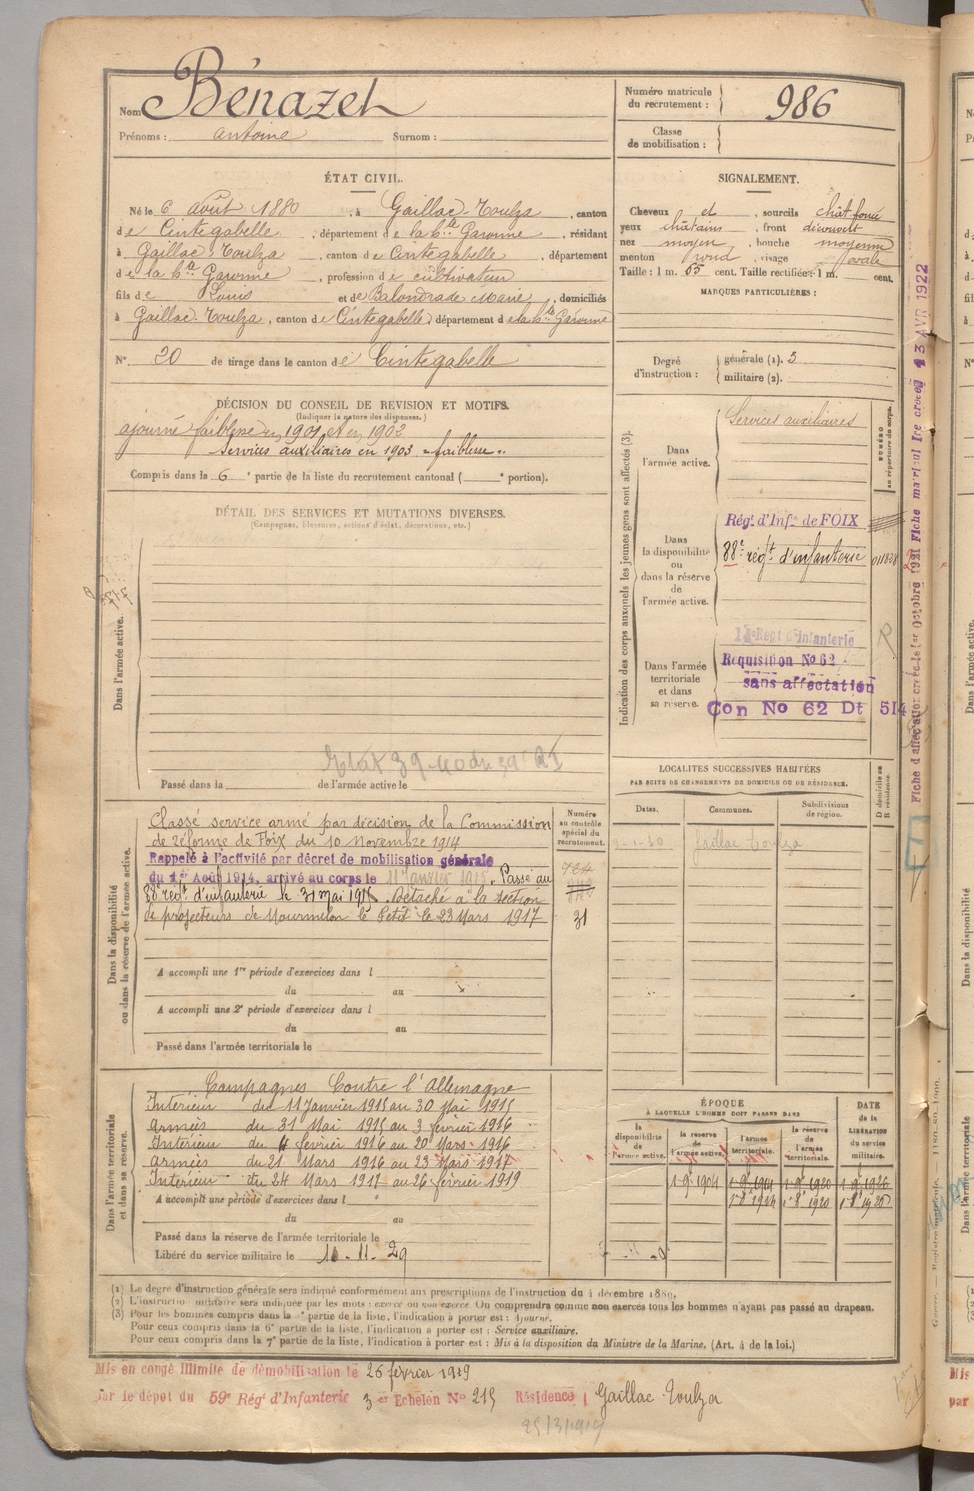 Nom Bénazet
Prénoms : antoine Surnom :
Numéro matricule du recrutement : 986
Classe de mobilisation :
ÉTAT CIVIL.
Né le 6 août 1880, à Gaillac-Toulza, canton
de Cintegabelle, département de la hte Garonne, résidant
à Gaillac-Toulza, canton de Cintegabelle, département
de la hte Garonne, profession de cultivateur
fils de Louis et de Balondrade Marie, domiciliés
à Gaillac-Toulza, canton de Cintegabelle, département de la hte Garonne
N° 20 de tirage dans le canton de Cintegabelle
SIGNALEMENT.
Cheveux et, sourcils chât foncé
yeux châtains, front découvert
nez moyen, bouche moyenne
menton rond, visage ovale
Taille : 1 m. 65 cent. Taille rectifiée : 1 m. cent.
MARQUES PARTICULIÈRES :
Degré d'instruction : générale (1). 3
militaire (2).
DÉCISION DU CONSEIL DE REVISION ET MOTIFS.
(Indiquer la nature des dispenses.)
ajourné faiblesse en 1901 et en 1902
Services auxiliaires en 1903 "faiblesse"
Compris dans la 6e partie de la liste du recrutement cantonal ( e portion).
DÉTAIL DES SERVICES ET MUTATIONS DIVERSES.
(Campagnes, blessures, actions d'éclat, décorations, etc.)
Dans l'armée active.
Passé dans la de l'armée active le
Indication des corps auxquels les jeunes gens sont affectés (3).
NUMÉRO au répertoire du corps.
Dans l'armée active. Services auxiliaires
Dans la disponibilité ou dans la réserve de l'armée active.
Rég. d'Infie de FOIX
88e régt d'infanterie
Dans l'armée territoriale et dans sa réserve.
Régt d'Infanterie
Requisition No 62
sans affectation
Con No 62 Dt 514
Fiche d'affectation créée le 1er Octobre 1921 Fiche matricul Ire créée 13 AVR 1922
Dans la disponibilité ou dans la réserve de l'armée active.
Numéro au contrôle spécial du recrutement.
Classé service armé par décision de la Commission
de réforme de Foix du 10 novembre 1914
Rappelé à l'activité par décret de mobilisation générale
du 1er Août 1914, arrivé au corps le 11 Janvier 1915. Passé au
88e régt d'infanterie le 31 mai 1915. Détaché à la section
de projecteurs de Mourmelon le Petit le 23 Mars 1917
31
A accompli une 1re période d'exercices dans l
du au
A accompli une 2e période d'exercices dans l
du au
Passé dans l'armée territoriale le
LOCALITÉS SUCCESSIVES HABITÉES
PAR SUITE DE CHANGEMENTS DE DOMICILE OU DE RÉSIDENCE.
Dates. Communes. Subdivisions de région. D domicile ou R résidence.
Gaillac Toulza
Dans l'armée territoriale et dans sa réserve.
Campagnes Contre l'Allemagne
Intérieur du 11 Janvier 1915 au 30 Mai 1915
Armées du 31 Mai 1915 au 3 février 1916
Intérieur du 4 février 1916 au 20 Mars 1916
Armées du 21 Mars 1916 au 23 Mars 1917
Intérieur du 24 Mars 1917 au 26 février 1919
A accompli une période d'exercices dans l
du au
Passé dans la réserve de l'armée territoriale le
Libéré du service militaire le 10-11-29
ÉPOQUE
À LAQUELLE L'HOMME DOIT PASSER DANS
la disponibilité de l'armée active. la réserve de l'armée active. l'armée territoriale. la réserve de l'armée territoriale.
DATE de la LIBÉRATION du service militaire.
(1) Le degré d'instruction générale sera indiqué conformément aux prescriptions de l'instruction du 4 décembre 1889.
(2) L'instruction militaire sera indiquée par les mots : exercé ou non exercé. On comprendra comme non exercés tous les hommes n'ayant pas passé au drapeau.
(3) Pour les hommes compris dans la partie de la liste, l'indication à porter est : Ajourné.
Pour ceux compris dans la 6e partie de la liste, l'indication à porter est : Service auxiliaire.
Pour ceux compris dans la 7e partie de la liste, l'indication à porter est : Mis à la disposition du Ministre de la Marine. (Art. 4 de la loi.)
Mis en congé Illimité de démobilisation le 26 février 1919
par le dépôt du 59e Rég' d'Infanterie 3 er Echelon No 215 Résidence Gaillac Toulza
25/3/1919